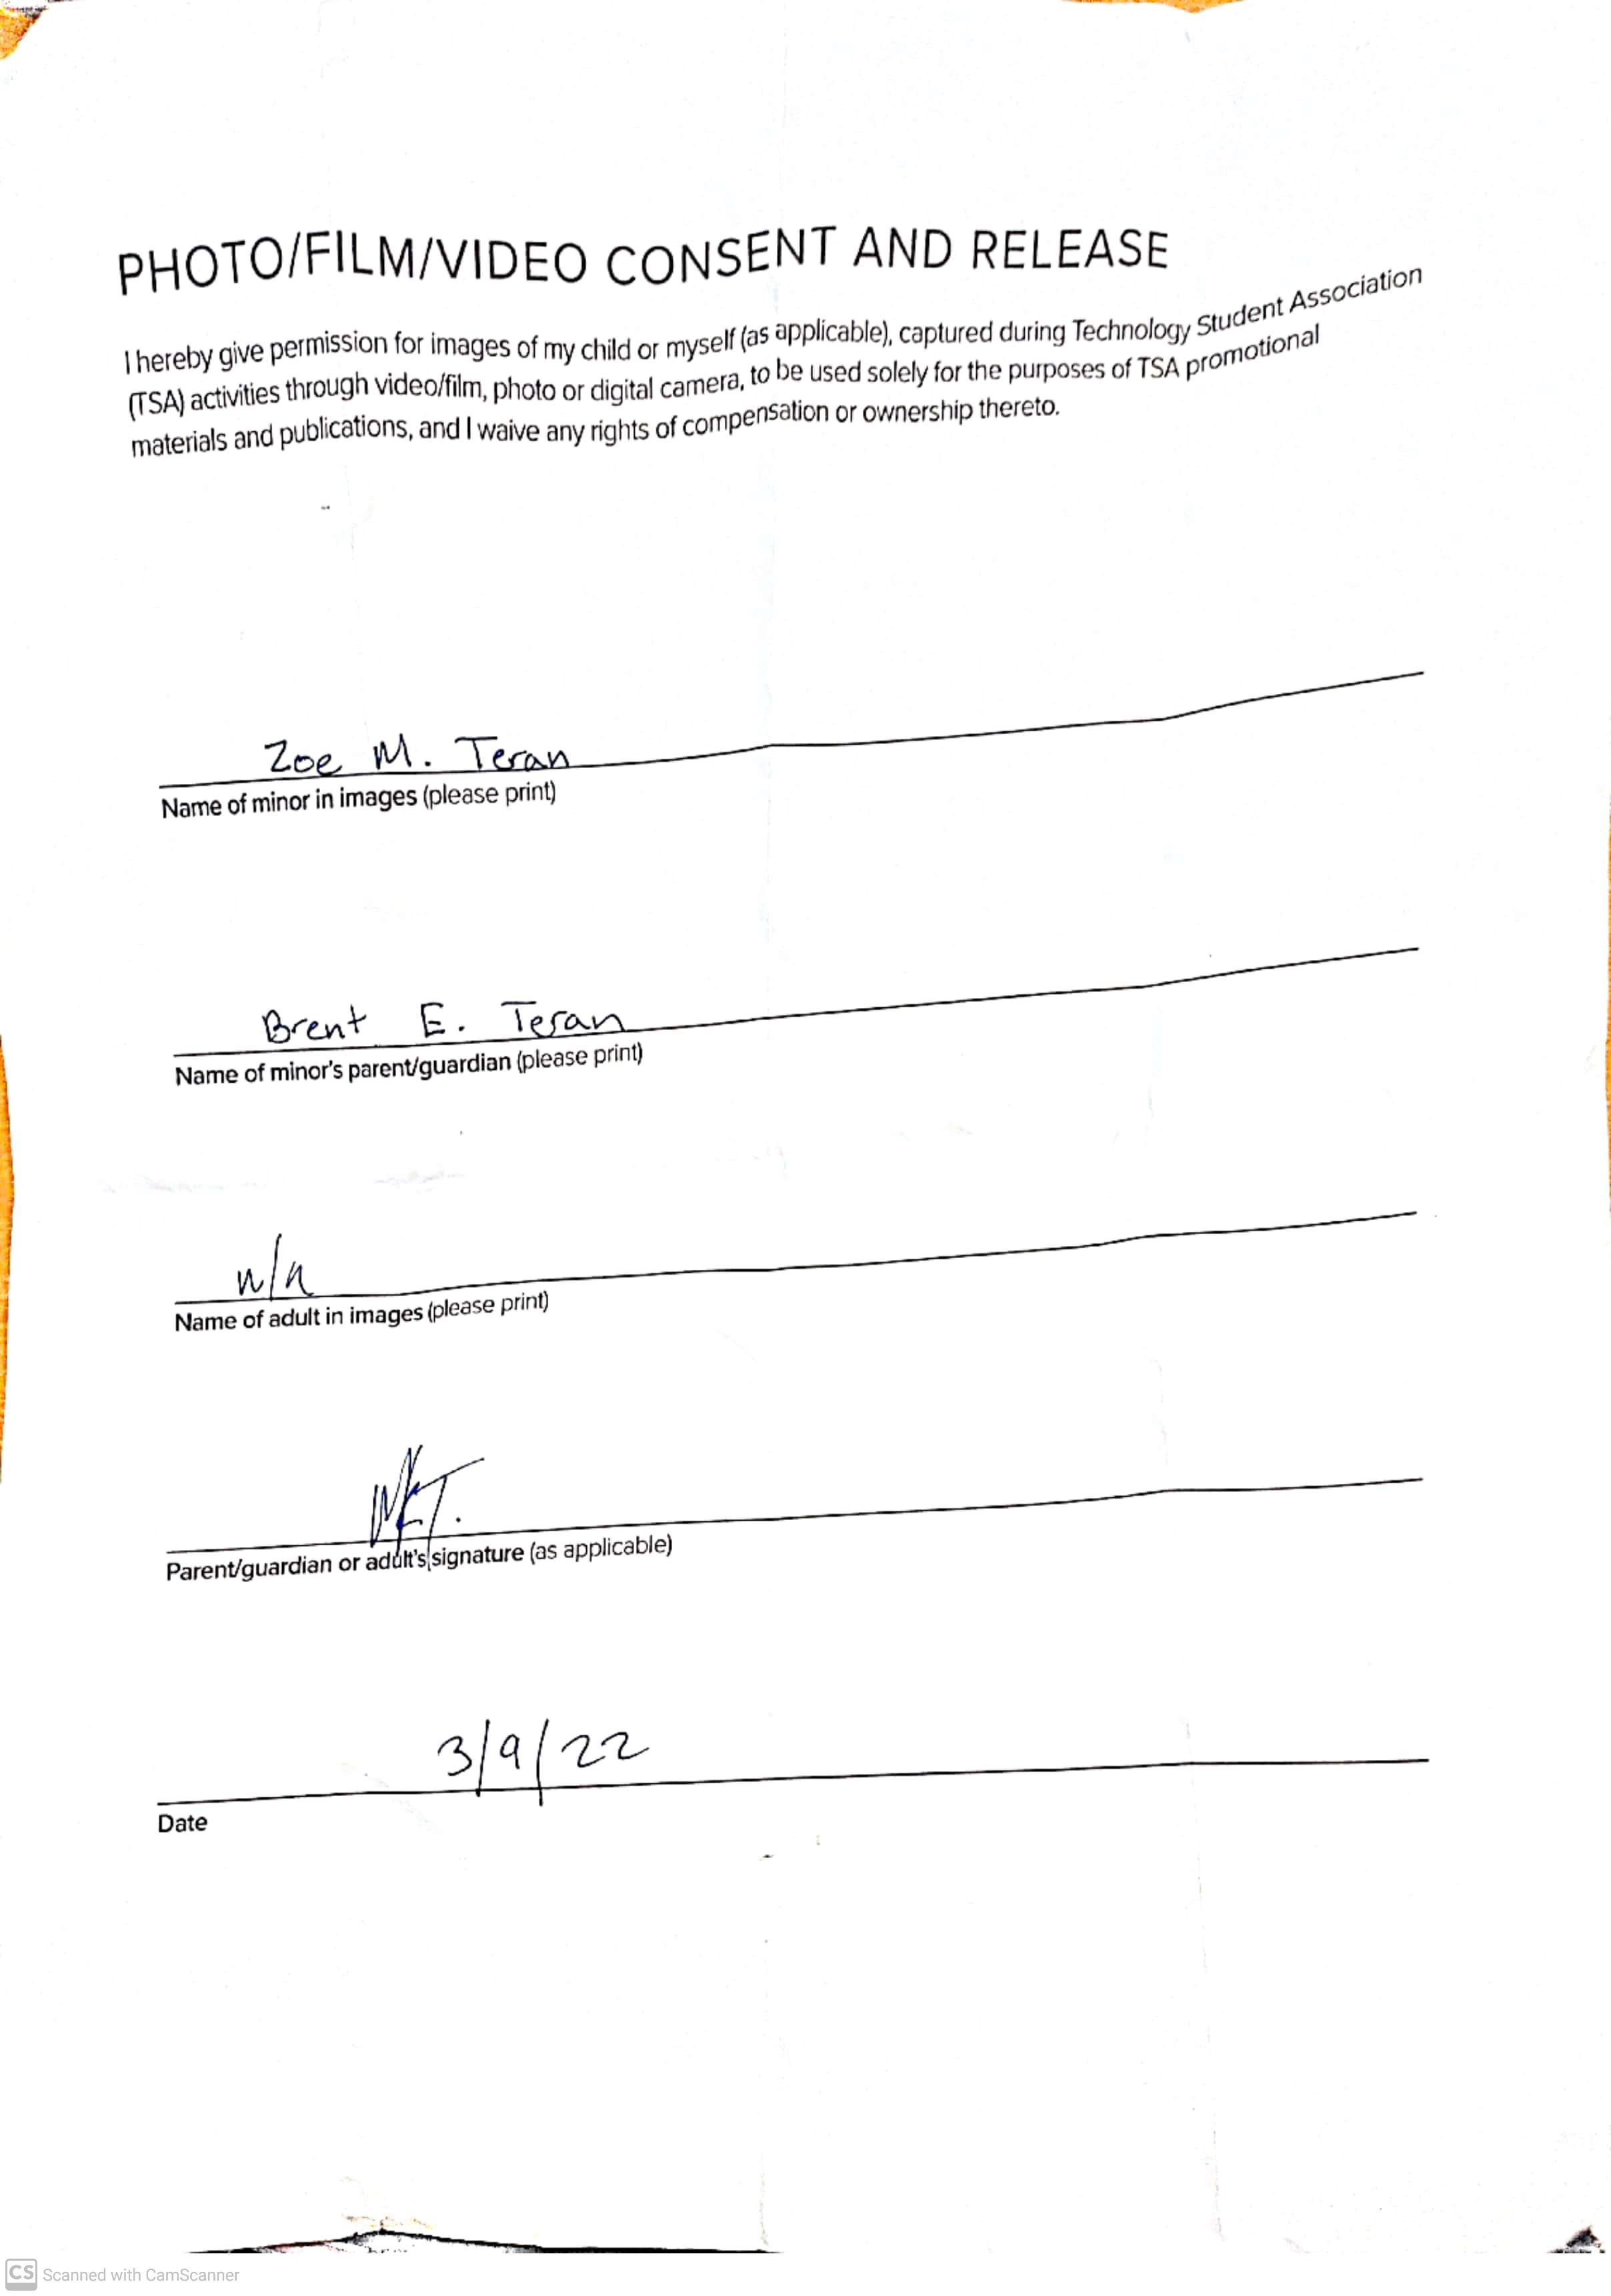 PHOTO/FILM/VIDEO CONSENT AND RELEASE
I hereby give permission for images of my child or myself (as applicable), captured during Technology Student Association
(TSA) activities through video/film, photo or digital camera, to be used solely for the purposes of TSA promotional
materials and publications, and I waive any rights of compensation or ownership thereto.
Zoe M. Teran
Name of minor in images (please print)
Brent E. Teran
Name of minor's parent/guardian (please print)
n/a
Name of adult in images (please print)
Parent/guardian or adult's signature (as applicable)
3/9/22
Date
CS Scanned with CamScanner